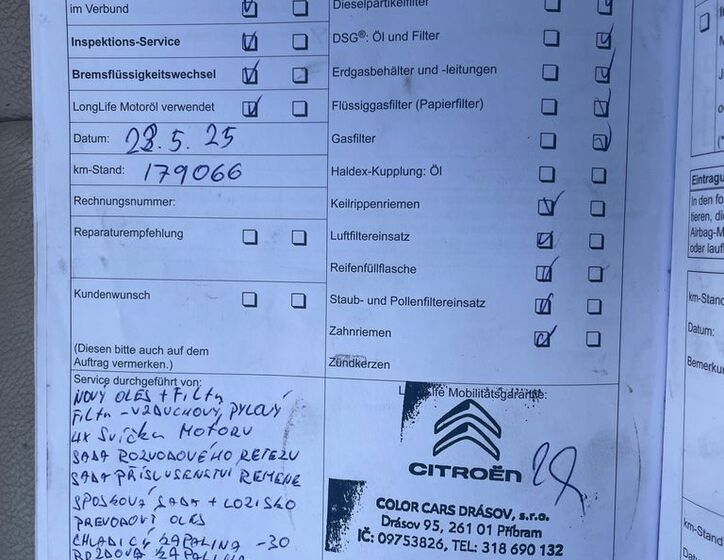 im Verbund
Inspektions-Service
Bremsflüssigkeitswechsel
LongLife Motoröl verwendet
Datum: 28.5.25
km-Stand: 179066
Rechnungsnummer:
Reparaturempfehlung
Kundenwunsch
(Diesen bitte auch auf dem
Auftrag vermerken.)
Dieselpartikelfilter
DSG®: Öl und Filter
Erdgasbehälter und -leitungen
Flüssiggasfilter (Papierfilter)
Gasfilter
Haldex-Kupplung: Öl
Keilrippenriemen
Luftfiltereinsatz
Reifenfüllflasche
Staub- und Pollenfiltereinsatz
Zahnriemen
Zündkerzen
Service durchgeführt von:
NOVÝ OLEJ + FILTR
FILTR - VZDUCHOVÝ, PYLOVÝ
4x SVÍČKA MOTORU
SADA ROZVODOVÉHO ŘETEZU
SADA PŘÍSLUSENSTVÍ REMENE
SPOJKOVÁ SADA + LOZISKO
PREVODOVÝ OLEJ
CHLADICÍ KAPALINA -30
KAPALINA
Mobilitätsgarantie:
CITROËN
COLOR CARS DRÁSOV, s.r.o.
Drásov 95, 261 01 Příbram
IČ: 09753826, TEL: 318 690 132
Eintragu
In den fo
tieren, di
Airbag-M
oder laufe
km-Stand
Datum:
Bemerku
km-Stand